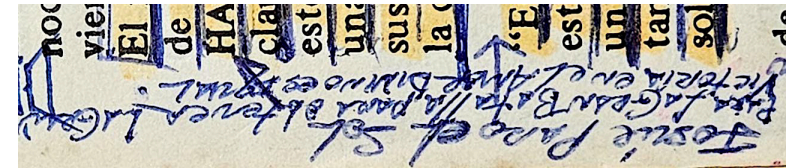 noc
vier
El
de
HA
clav
est
una
sus
la c
"E
est
un
tar
sol
Josué Paro el Sol
Para La Gran Batalla, para obtener La Gran
Victoria en el Amor Divino es igual.